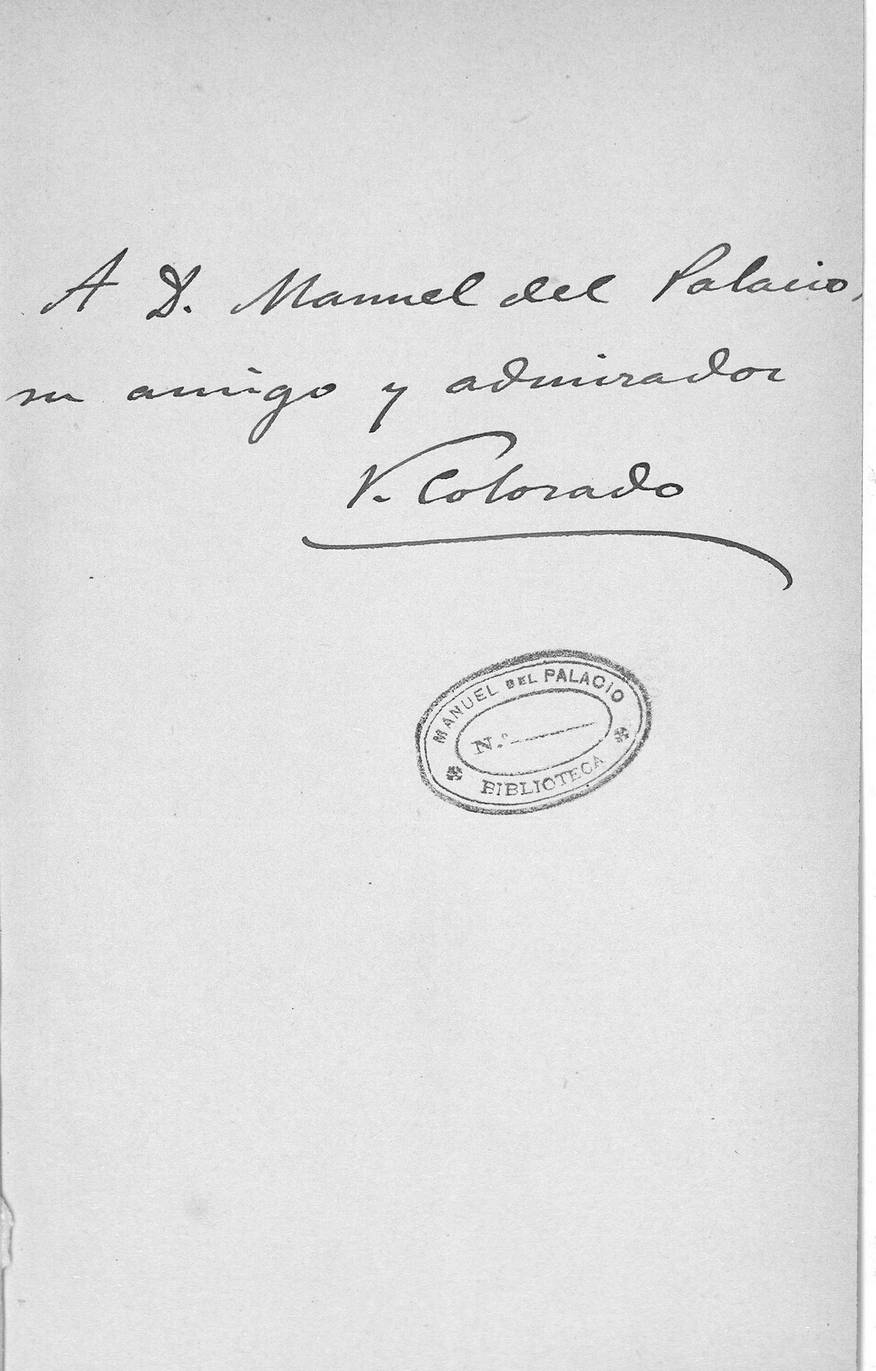 A D. Manuel del Palacio,
su amigo y admirador
V. Colorado
MANUEL DEL PALACIO
N.º
BIBLIOTECA